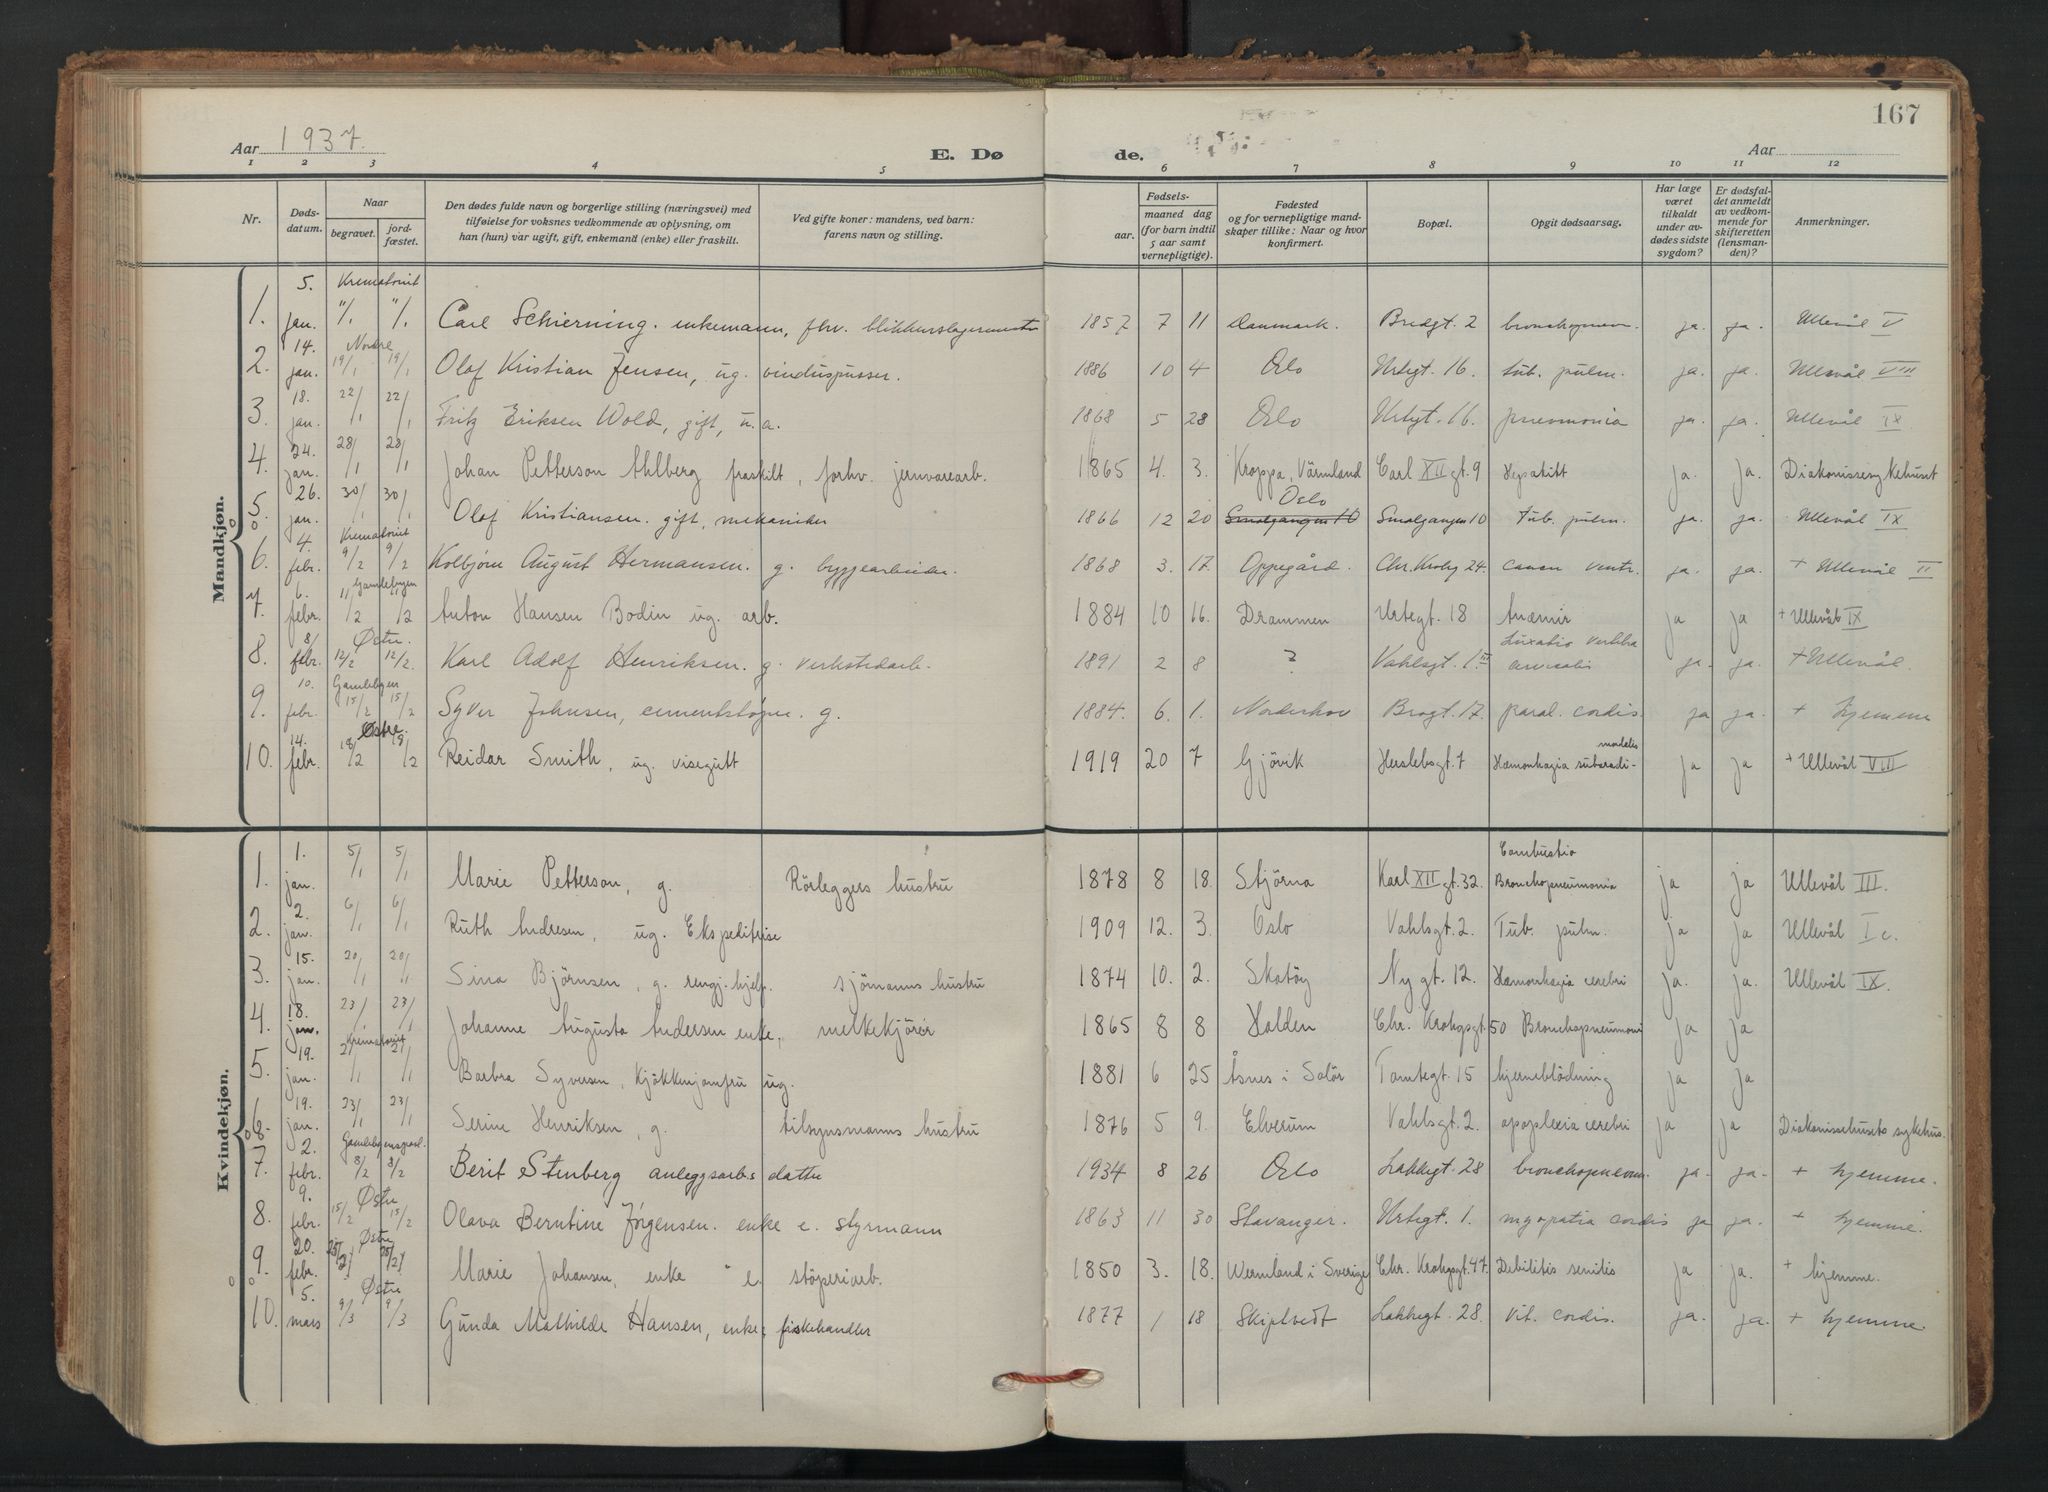 167
Aar 1937.
E. Dø
de.
Aar
1 2 3 4 5 6 7 8 9 10 11 12
Nr.
Døds-datum.
Naar
begravet.
jord-fæstet.
Den dødes fulde navn og borgerlige stilling (næringsvei) med
tilføielse for voksnes vedkommende av oplysning, om
han (hun) var ugift, gift, enkemand (enke) eller fraskilt.
Ved gifte koner: mandens, ved barn:
farens navn og stilling.
Fødsels-
aar.
maaned dag
(for barn indtil
5 aar samt
vernepligtige).
Fødested
og for vernepligtige mand-
skaper tillike: Naar og hvor
konfirmert.
Bopæl.
Opgit dødsaarsag.
Har læge
været
tilkaldt
under av-
dødes sidste
sygdom?
Er dødsfal-
det anmeldt
av vedkom-
mende for
skifteretten
(lensman-
den)?
Anmerkninger.
Mandkjøn.
1. 5. jan. Krematoriet "/1 "/1 Carl Schierning. enkemann, fhv. blikkenslagermester 1857 7 11 Danmark. Bredgt. 2 bronchopneu. ja. ja. Ullevål V
2. 14. jan. Nordre 19/1 19/1 Olaf Kristian Jensen, ug. vinduspusser. 1886 10 4 Oslo Urtegt. 16. tub. pulm. ja. ja. Ullevål VIII
3. 18. jan. 22/1 22/1 Fritz Eriksen Wold, gift, u.a. 1868 5 28 Oslo Urtegt. 16. pneumonia ja. ja. Ullevål IX
4. 24. jan. 28/1 28/1 Johan Petterson Ahlberg fraskilt, forhv. jernvarearb. 1865 4. 3. Kroppa, Värmland Carl XII gt. 9 Hepatitt ja. ja. Diakonissesykehuset
5. 26. jan. 30/1 30/1 Olaf Kristiansen. gift, mekaniker 1866 12 20 Smalgangen 10 Oslo Smalgangen 10 Tub. pulm. ja. ja. Ullevål IX
6. 4. febr. Krematoriet 9/2 9/2 Kolbjørn August Hermansen. g. byggearbeider. 1868 3. 17. Oppegård. Chr. Krohg 24. cancer ventr. ja. ja. + Ullevål II
7. 6. febr. Gamlebyen 11/2 11/2 Anton Hansen Bodin ug. arb. 1884 10 16. Drammen Urtegt. 18 Anæmir ja ja + Ullevål IX
8. 8/ febr. Østre. 12/2 12/2. Karl Adolf Henriksen. g. verkstedarb. 1891 2 8 ? Vahlsgt. 1. III Luxatio vertebra cervicalis ja. ja. + Ullevål.
9. 10. febr. Gamlebyen 15/2 15/2 Syver Johnsen, cementstøper. g. 1884. 6. 1. Norderhov Brogt. 17. paral. cordis. ja ja. + hjemme
10. 14. febr. Østre. 18/2 18/2 Reidar Smith, ug. visegutt 1919 20 7 Gjövik Herslebsgt. 7 Hæmorrhagia subaradi- ja ja + Ullevål VIII
Kvindekjøn.
1. 1. jan. 5/1 5/1 Marie Petterson, g. Rörleggers hustru 1878 8 18. Stjörna Karl XII gt. 32. Combustio Bronchopneumonia ja ja Ullevål III.
2. 2. jan. 6/1 6/1 Ruth Andresen, ug. Ekspeditrise 1909 12. 3. Oslo Vahlsgt. 2. Tub. pulm. ja ja Ullevål I c.
3. 15. jan. 20/1 20/1 Sina Björnsen, g. rengj. hjelp. sjömanns hustru 1874 10. 2. Skatöy Nygt. 12. Hæmorrhagia cerebri ja. ja. Ullevål IX.
4. 18. jan. 23/1 23/1 Johanne Augusta Andersen enke, melkekjörer 1865 8 8 Halden Chr. Krohgsgt. 50 Bronchopneumoni ja ja
5. 19. jan. Krematoriet 21/1 21/1 Barbra Syversen, kjökkenjomfru ug. 1881 6 25 Åsnes i Solör Tomtegt. 15 hjerneblödning ja ja
6. 19. jan. 23/1 23/1 Serine Henriksen, g. tilsynsmanns hustru 1876 5 9. Elverum Vahlsgt. 2. apoplexia cerebri ja ja Diakonissehusets sykehus.
7. 2. febr. Gamlebyensgravl. 8/2 8/2 Berit Stenberg anleggsarb.s datter 1934 8 26 Oslo Lakkegt. 28 bronchopneum. ja. ja. + hjemme.
8. 9. febr. Østre 15/2 15/2 Olava Berntine Jørgensen. enke e. styrmann 1863 11 30 Stavanger. Urtegt. 1. myopatia cordis ja ja. + hjemme.
9. 20. febr. Østre 25/2 25/2 Marie Johansen, enke e. støperiarb. 1850 3. 18. Wermland i Sverige Chr. Krohgsgt. 47. Debilitis senilis ja ja. + hjemme.
10. 5. mars Østre 9/3 9/3 Gunda Mathilde Hansen, enke, fiskehandler 1877 1 18 Skiptvedt Lakkegt. 28. vit. cordis. ja. ja. + hjemme.